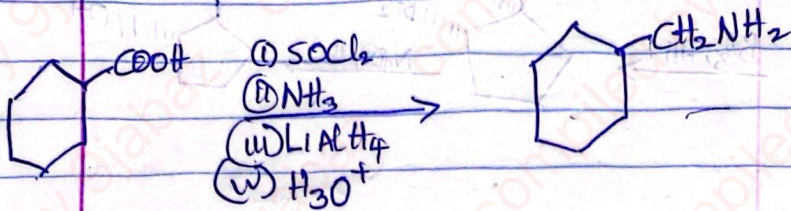 COOH
(i) SOCl₂
(ii) NH₃
(iii) LiAlH₄
(iv) H₃O⁺
CH₂NH₂